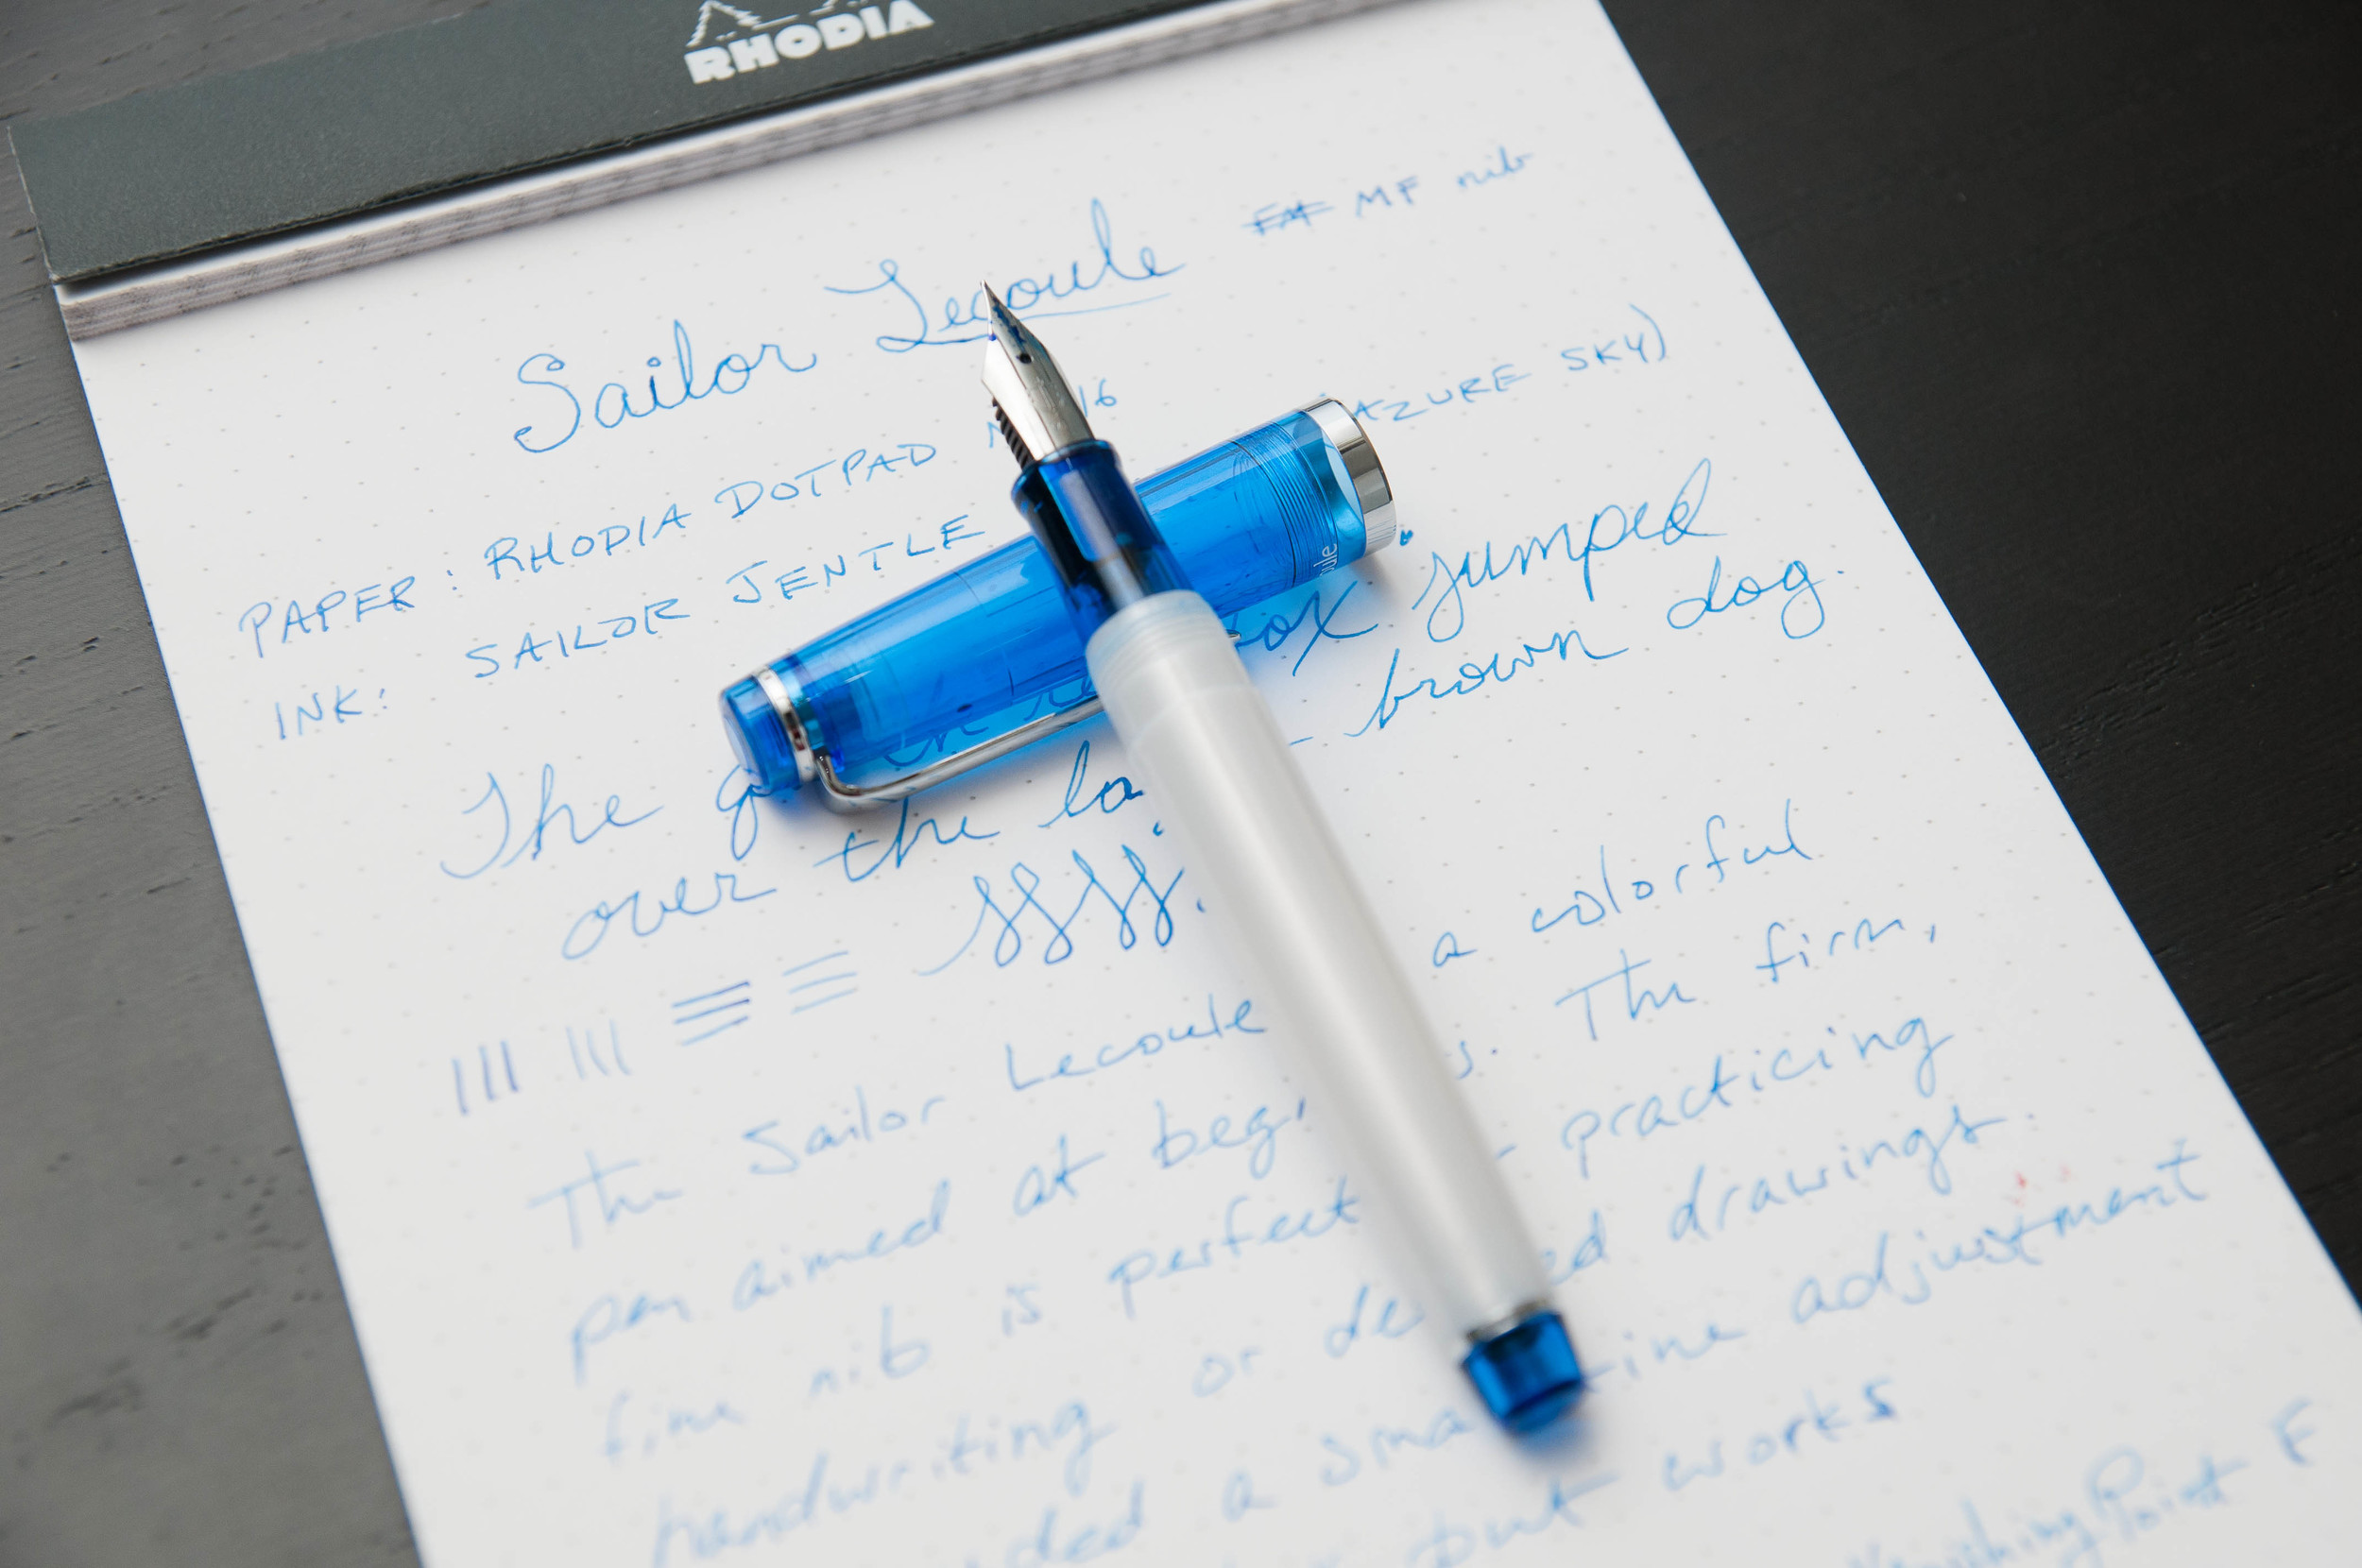 RHODIA
Sailor Lecoule MF nib
PAPER: RHODIA DOTPAD 16
INK: SAILOR JENTLE (AZURE SKY)
The jumped
over the brown dog.
The Sailor Lecoule a colorful
pen aimed at The firm,
fine nib is perfect practicing
handwriting or drawings.
a fine adjustment
but works
Vanishing Point F